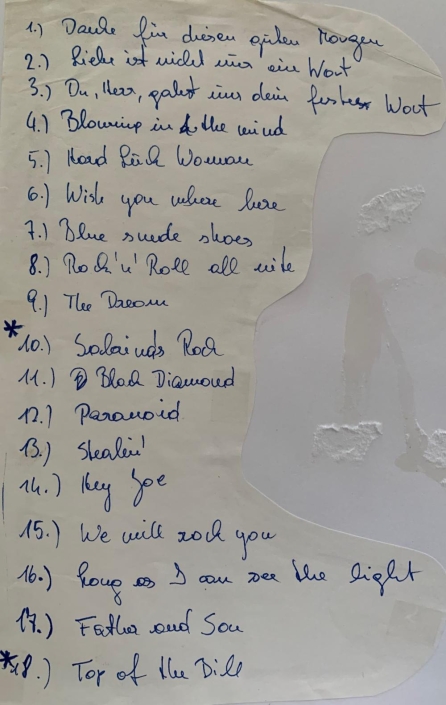 1.) Danke für diesen guten Morgen
2.) Liebe ist nicht nur ein Wort
3.) Du, Herr, gabst uns dein festes Wort
4.) Blowing in the wind
5.) Hard Luck Woman
6.) Wish you where here
7.) Blue suede shoes
8.) Rock'n'Roll all nite
9.) The Dream
* 10.) Rock
11.) Black Diamond
12.) Paranoid
13.) Stealin'
14.) Hey Joe
15.) We will rock you
16.) Long as I can see the light
17.) Father and Son
* 18.) Top of the Bill